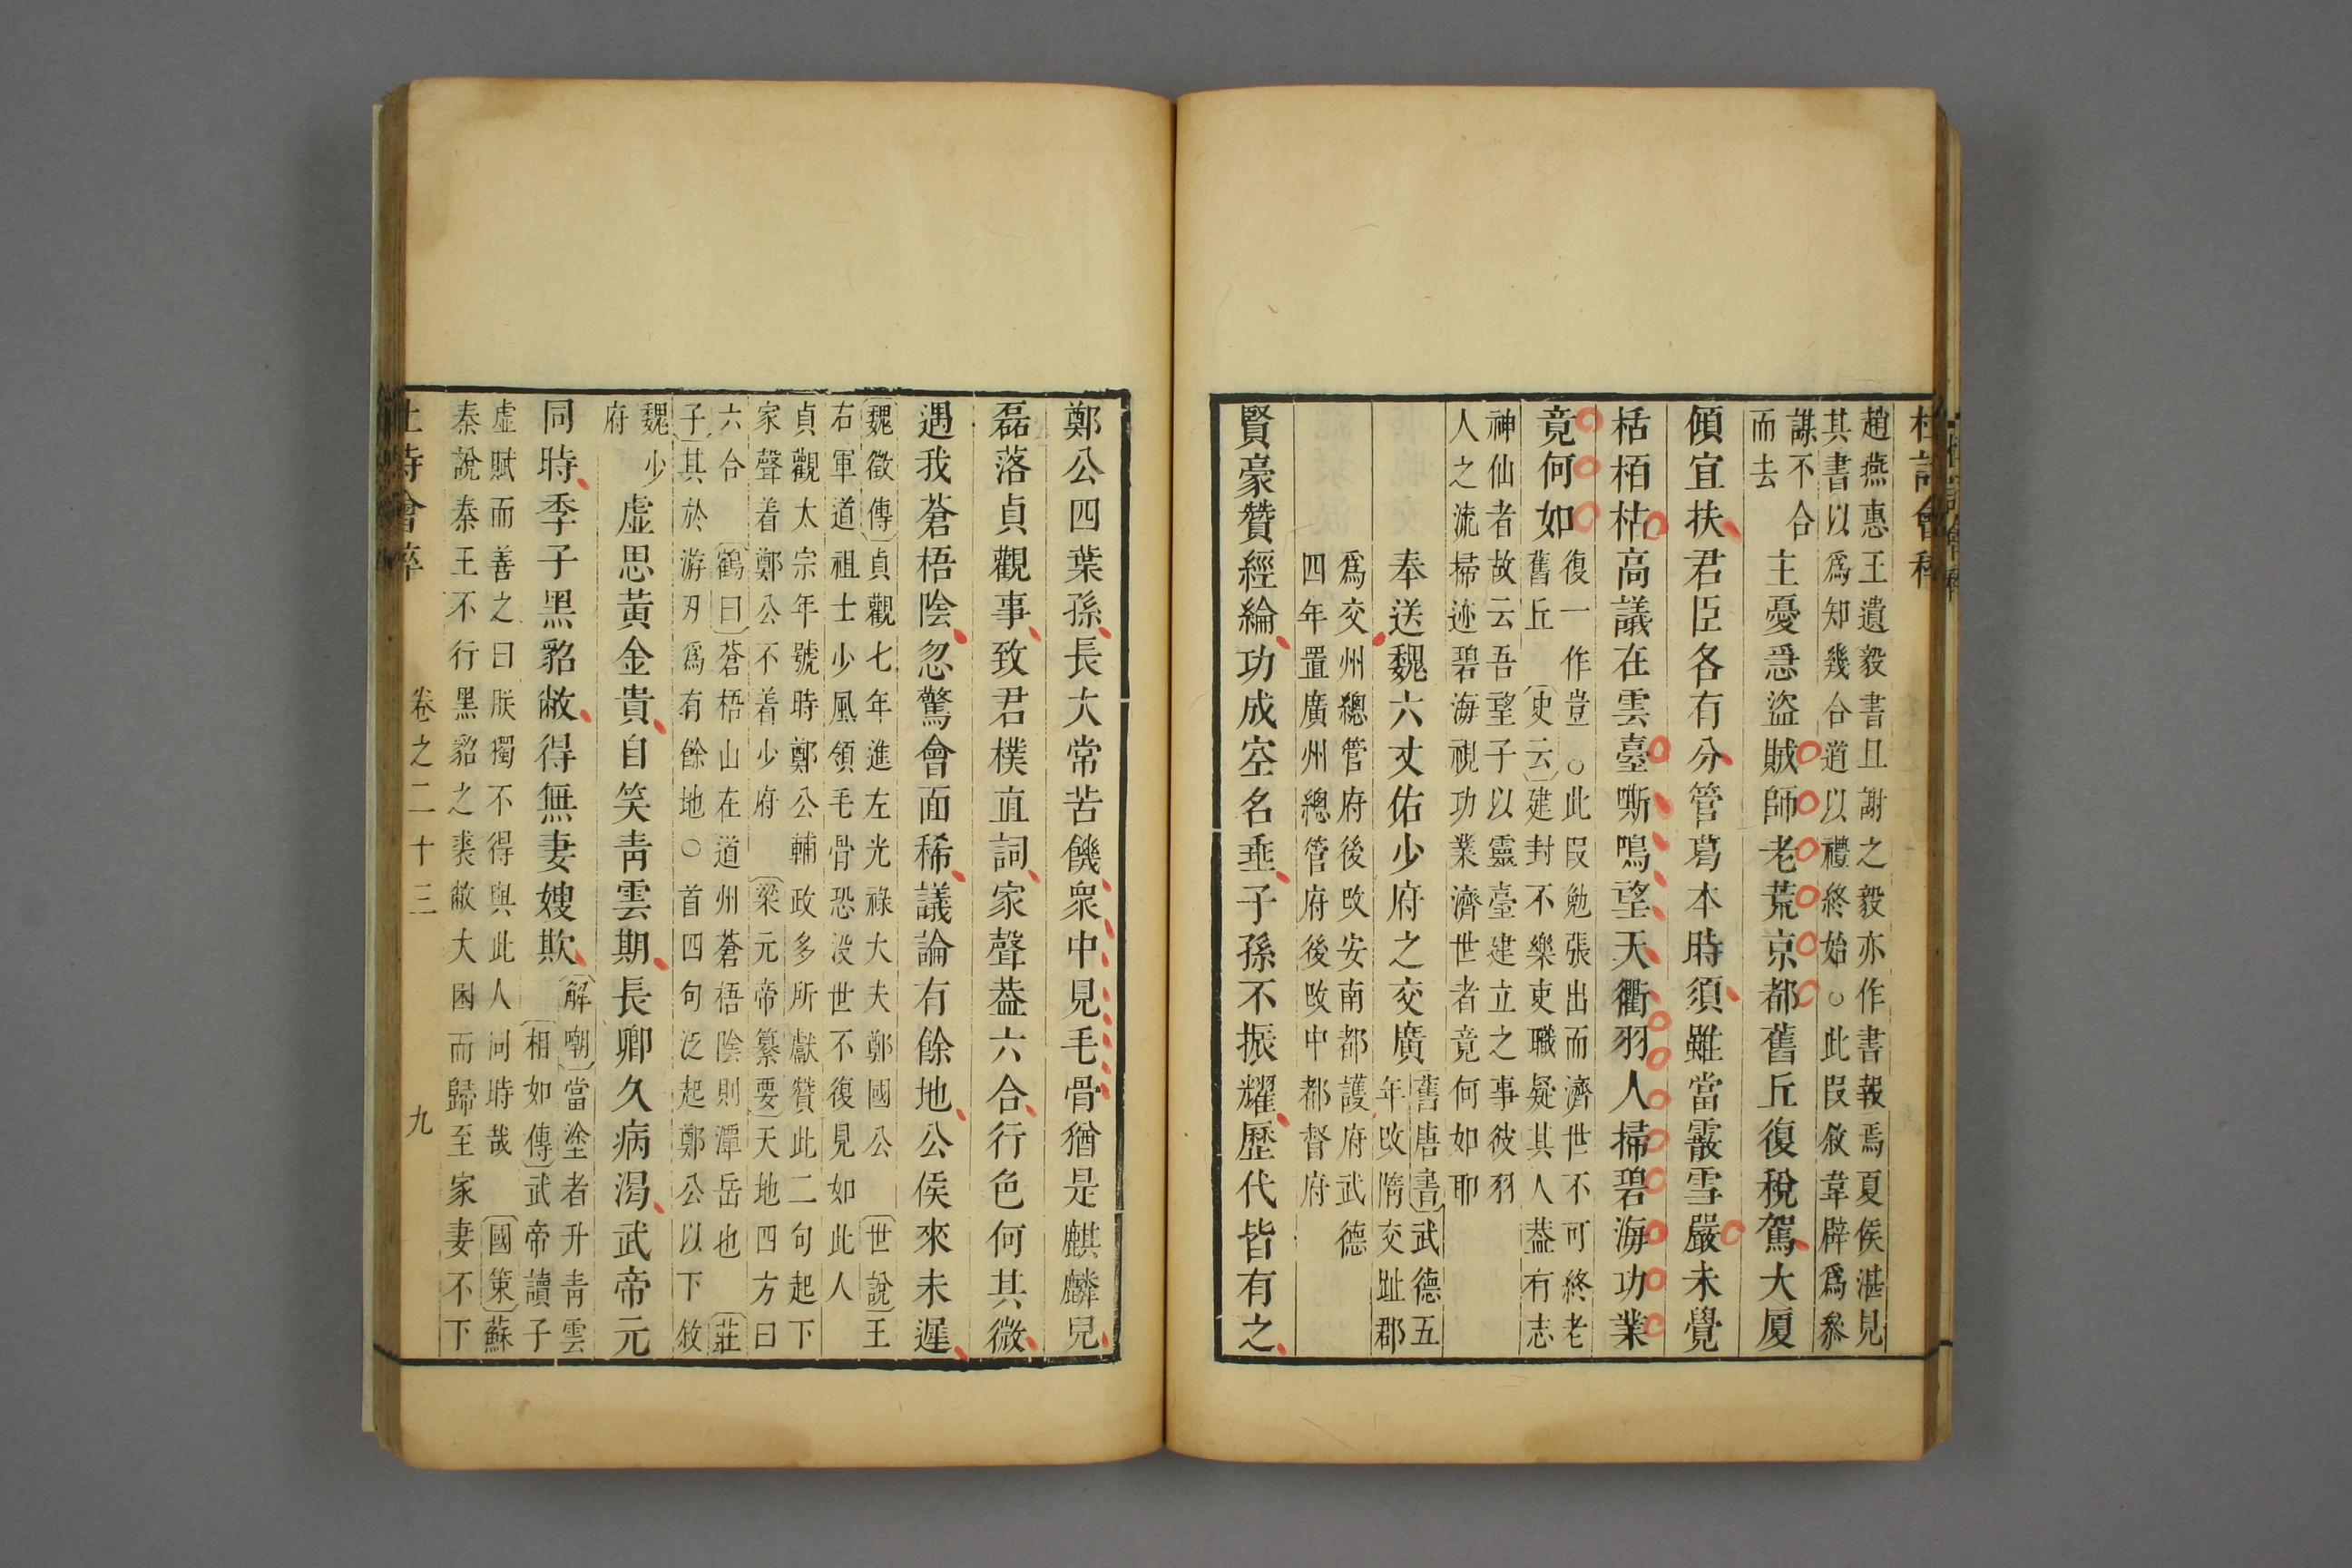 杜詩會稡
趙燕惠王遺毅書且謝之毅亦作書報焉夏侯湛見
其書以爲知幾合道以禮終始○此叚敘韋辟爲叅
謀不合
而去
主憂急盜賊師老荒京都舊丘復稅駕大厦
傾宜扶君臣各有分管葛本時須雖當霰雪嚴未覺
栝栢枯高議在雲臺嘶鳴望天衢羽人掃碧海功業
竟何如
復一作豈○此叚勉張出而濟世不可終老
舊丘史云建封不樂吏職疑其人葢有志
神仙者故云吾望子以靈臺建立之事彼羽
人之流掃迹碧海視功業濟世者竟何如耶
奉送魏六丈佑少府之交廣
舊唐書武德五
年改隋交趾郡
爲交州總管府後改安南都護府武德
四年置廣州總管府後改中都督府
賢豪贊經綸功成空名垂子孫不振耀歷代皆有之
鄭公四葉孫長大常苦饑衆中見毛骨猶是麒麟兒
磊落貞觀事致君樸直詞家聲葢六合行色何其微
遇我蒼梧陰忽驚會面稀議論有餘地公侯來未遲
魏徵傳貞觀七年進左光祿大夫鄭國公 世說王
右軍道祖士少風領毛骨恐沒世不復見如此人
貞觀太宗年號時鄭公輔政多所獻贊此二句起下
家聲着鄭公不着少府 梁元帝纂要天地四方曰
六合 鶴曰蒼梧山在道州蒼梧陰則潭岳也 莊
子其於游刃爲有餘地○首四句泛起鄭公以下敘
魏少
府
虛思黃金貴自笑青雲期長卿久病渴武帝元
同時季子黑貂敝得無妻嫂欺
解嘲當塗者升青雲
相如傳武帝讀子
虛賦而善之曰朕獨不得與此人同時哉 國策蘇
秦說秦王不行黑貂之裘敝大困而歸至家妻不下
杜詩會稡 卷之二十三 九